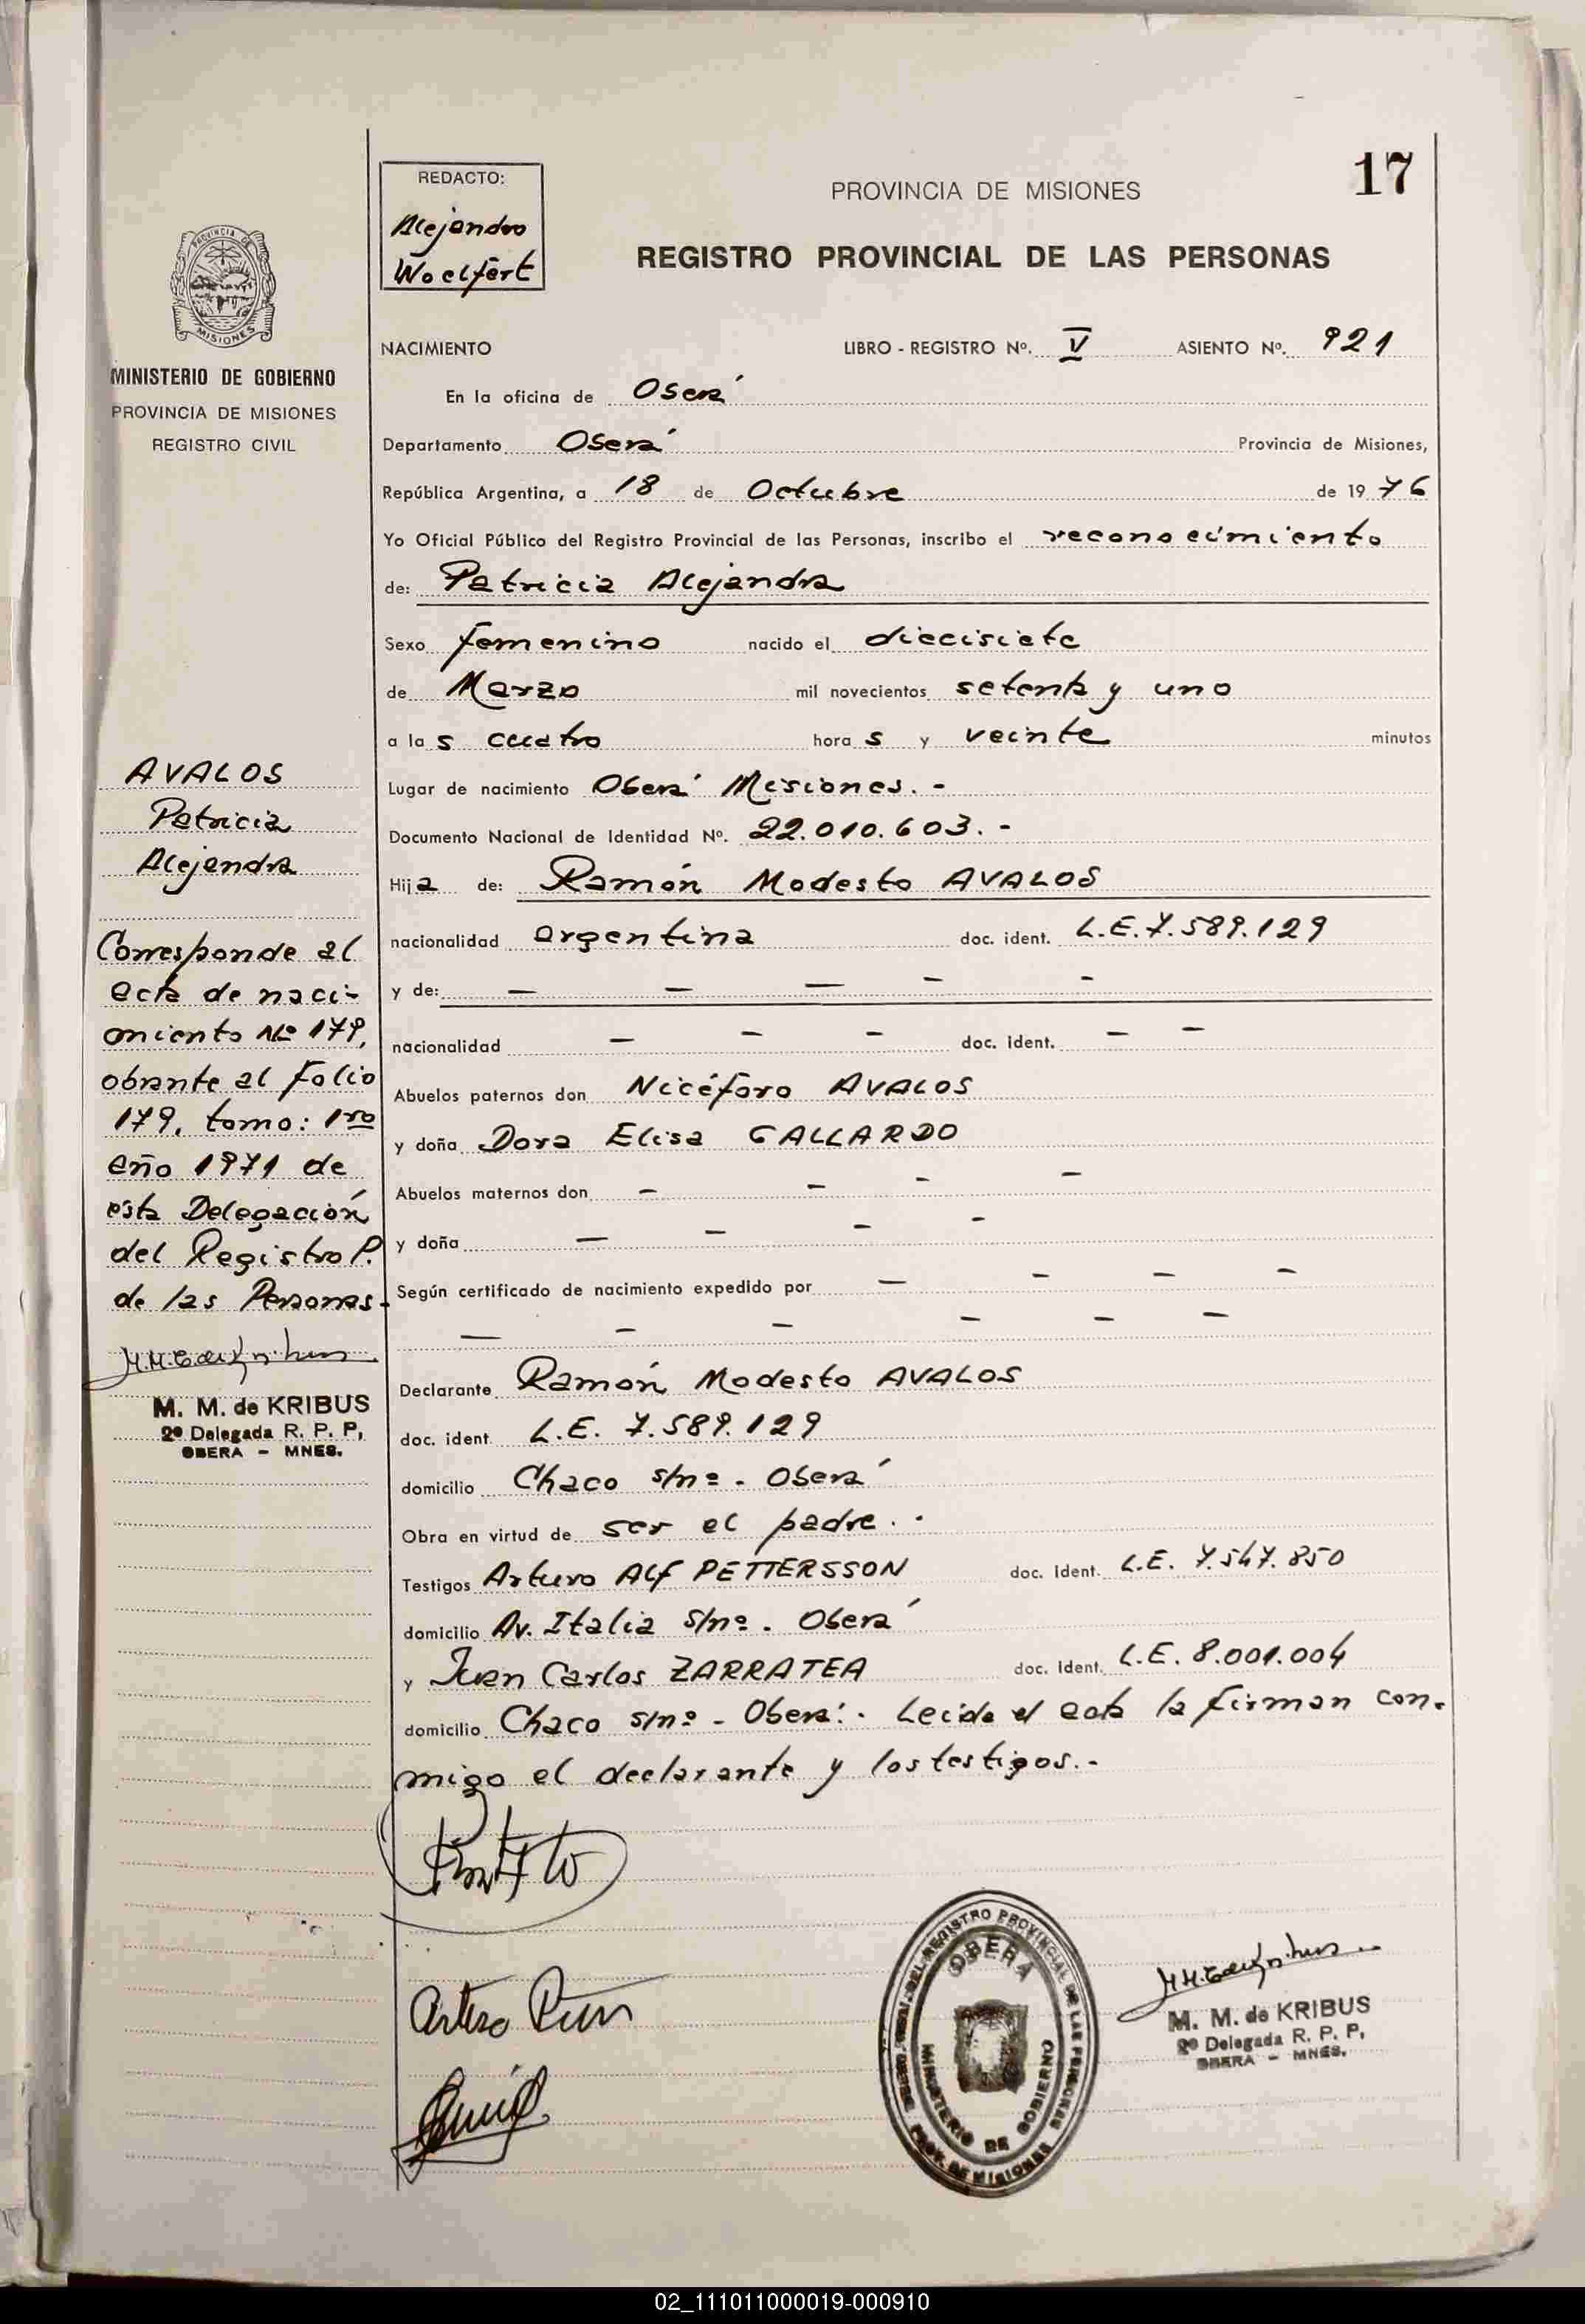 17
REDACTO:
Alejandro
Woelfert
PROVINCIA DE MISIONES
REGISTRO PROVINCIAL DE LAS PERSONAS
PROVINCIA DE
MISIONES
MINISTERIO DE GOBIERNO
PROVINCIA DE MISIONES
REGISTRO CIVIL
NACIMIENTO LIBRO - REGISTRO Nº. V ASIENTO Nº. 921
En la oficina de Oberá
Departamento Oberá Provincia de Misiones,
República Argentina, a 18 de Octubre de 1976
Yo Oficial Público del Registro Provincial de las Personas, inscribo el reconocimiento
de: Patricia Alejandra
Sexo femenino nacido el diecisiete
de Marzo mil novecientos setenta y uno
a las cuatro horas y veinte minutos
Lugar de nacimiento Oberá Misiones. -
Documento Nacional de Identidad Nº. 22.010.603. -
Hija de: Ramón Modesto AVALOS
nacionalidad argentina doc. ident. L.E. 7.589.129
y de: — — — — -
nacionalidad — — — doc. ident. — —
Abuelos paternos don Nicéforo AVALOS
y doña Dora Elisa GALLARDO
Abuelos maternos don — — — —
y doña — — — —
Según certificado de nacimiento expedido por — — — —
— — — — — —
Declarante Ramón Modesto AVALOS
doc. ident. L.E. 7.589.129
domicilio Chaco s/nº - Oberá
Obra en virtud de ser el padre. -
Testigos Arturo Alf PETTERSSON doc. Ident. L.E. 7.547.850
domicilio Av. Italia s/nº. Oberá
y Juan Carlos ZARRATEA doc. Ident. L.E. 8.001.004
domicilio Chaco s/nº - Oberá. - Leída el acta la firman con-
migo el declarante y los testigos. -
AVALOS
Patricia
Alejandra
Corresponde al
acta de naci-
miento Nº 179,
obrante al folio
179, tomo: 1ro
año 1971 de
esta Delegación
del Registro P.
de las Personas-
M. M. de KRIBUS
2º Delegada R. P. P,
OBERA - MNES.
Arturo
OBERA
MINISTERIO DE GOBIERNO
DEL REGISTRO PROVINCIAL DE LAS PERSONAS
PROV. DE MISIONES
M. M. de KRIBUS
2º Delegada R. P. P,
OBERA - MNES.
02_111011000019-000910